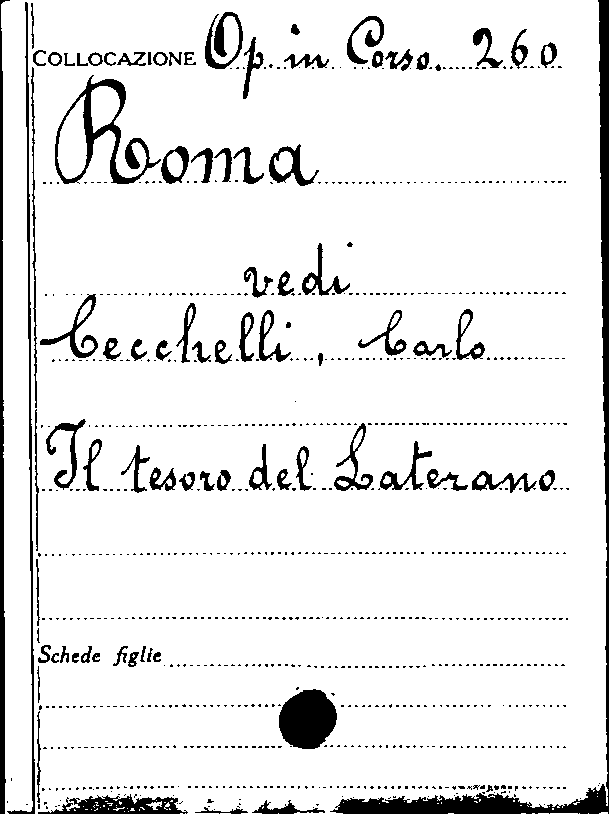 COLLOCAZIONE Op. in Corso. 260
Roma
vedi
Cecchelli, Carlo
Il tesoro del Laterano
Schede figlie